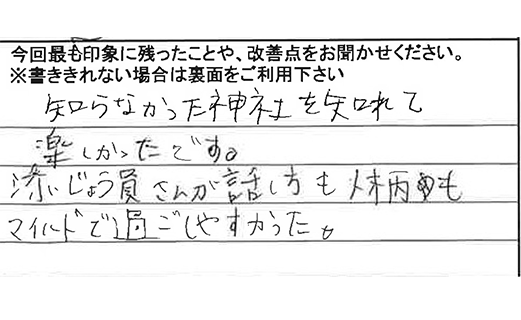 今回最も印象に残ったことや、改善点をお聞かせください。
※書ききれない場合は裏面をご利用下さい
知らなかった神社を知れて
楽しかったです。
添いじょう員さんが話し方も人柄も
マイルドで過ごしやすかった。